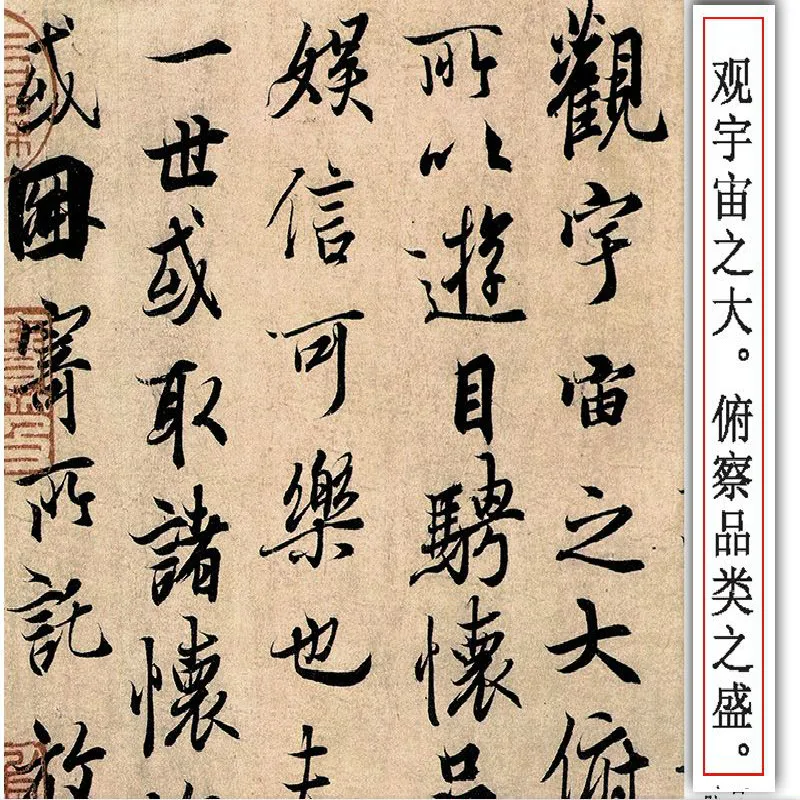 观宇宙之大。俯察品类之盛。
觀宇宙之大俯
所以遊目騁懷
娛信可樂也夫
一世或取諸懷
或因寄所託放